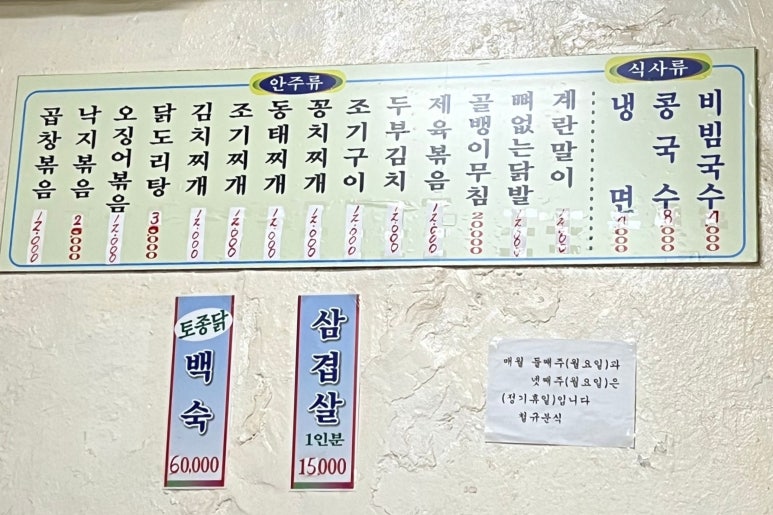 안주류
곱창볶음
12.000
낙지볶음
오징어볶음
12.000
닭도리탕
김치찌개
12000
조기찌개
12000
동태찌개
12.000
꽁치찌개
12.000
조기구이
12.000
두부김치
12000
제육볶음
12.000
골뱅이무침
20000
뼈없는닭발
계란말이
식사류
냉면
콩국수
8000
비빔국수
토종닭
백숙
60,000
삼겹살
1인분
15,000
매월 둘째주(월요일)과
넷째주(월요일)은
(정기휴일)입니다